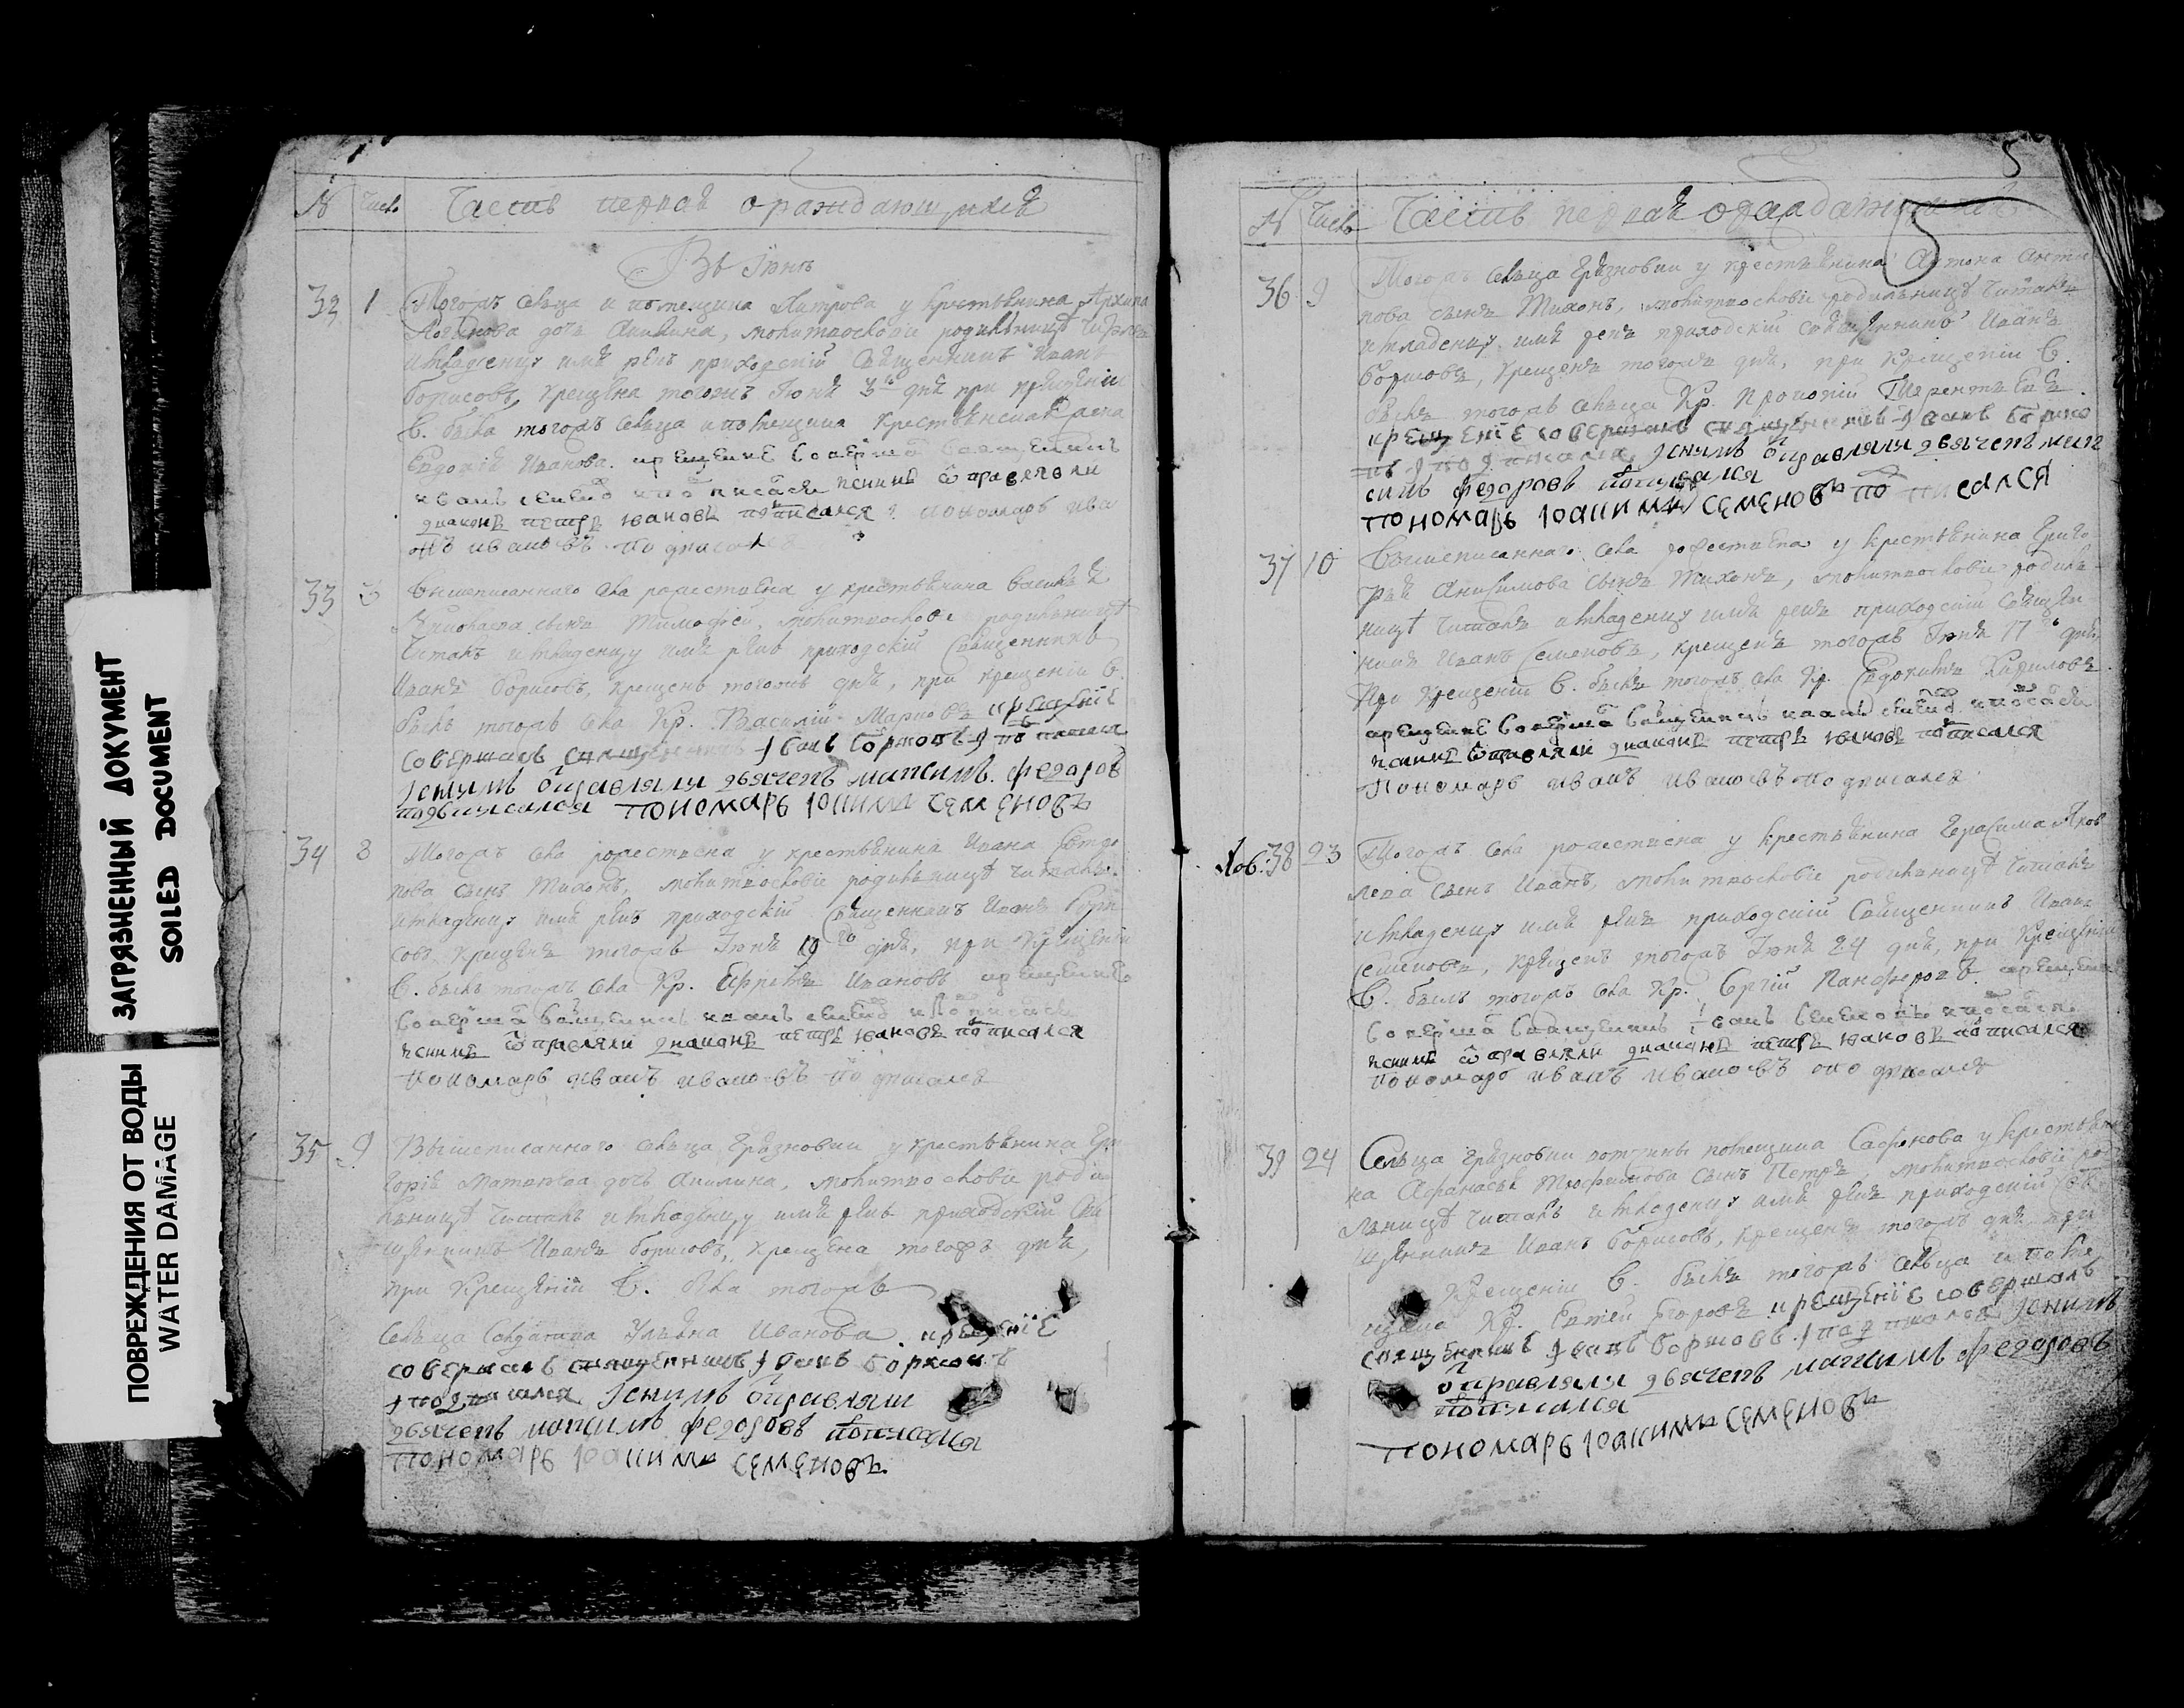 ЗАГРЯЗНЕННЫЙ ДОКУМЕНТ
SOILED DOCUMENT
ПОВРЕЖДЕНИЯ ОТ ВОДЫ
WATER DAMAGE
№ Число Часть первая о раждающихся
Въ Iюнѣ
32 1 Тогожъ сельца и помещика у крестьянина Архипа
дочь Акилина, молитвословiе родильницѣ читалъ
и младенцу имя рекъ приходскiй священникъ Иванъ
Борисовъ, крещена тогожъ Iюня 3 дня при крещенiи
В. была тогожъ сельца и помещика крестьянская
Иванова. крещение совѣрша священникъ
иванъ и подписася
диаконъ петръ ивановъ подписался пономарь ива
нъ ивановъ подписался
33 3 Вышеписанного села рождествена у крестьянина Василья
сынъ Тимофей, молитвословiе родильницѣ
читалъ и младенцу имя рекъ приходскiй священникъ
Иванъ Борисовъ, крещенъ тогожъ дня, при крещенiи В.
былъ тогожъ села Кр. Василiй крещенiе
совершалъ священникъ Iванъ Борисовъ I подписался
Iснимъ отправляли дьячекъ маѯимъ федоровъ
подписался пономарь Iоакимъ семеновъ
34 8 Тогожъ села рождествена у крестьянина Ивана
сынъ Тихонъ, молитвословiе родильницѣ читалъ
и младенцу имя рекъ приходскiй священникъ Иванъ Бори
совъ крещенъ тогожъ Iюня 10 дня, при крещенiи
В. былъ тогожъ села Кр. Ефремъ Ивановъ крещение
совѣрша священникъ иванъ и подписася
исними отправляли диаконъ петръ ивановъ подписался
пономарь иванъ ивановъ подписался
35 9 Вышеписанного сельца Грязновки у крестьянина Гри
горья дочь Акилина, молитвословiе роди
льницѣ читалъ и младенцу имя рекъ приходскiй свя
щенникъ Иванъ Борисовъ, крещена тогожъ дня,
при крещенiи В. была тогожъ
сельца солдатка Ульяна Иванова. крещенiе
совершалъ священникъ Iванъ борисовъ
I подписался Iснимъ отправляли
дьячекъ маѯимъ федоровъ подписался
пономарь Iоакимъ семеновъ
5
№ Число Часть первая о раждающихся
36 9 Тогожъ сельца Грязновки у крестьянина Антона Анти
пова сынъ Тихонъ, молитвословiе родильницѣ читалъ
и младенцу имя рекъ приходскiй священникъ Иванъ
Борисовъ, крещенъ тогожъ дня, при крещенiи В.
былъ тогожъ сельца Кр. Прокопiй
крещенiе совершалъ священникъ Iванъ Борисо
въ I подписался Iснимъ отправляли дьячекъ мак
симъ федоровъ подписался
пономарь Iоакимъ семеновъ подписался
37 10 Вышеписанного села рождествена у крестьянина Григо
рья Анисимова сынъ Тихонъ, молитвословiе родиль
ницѣ читалъ и младенцу имя рекъ приходскiй священ
никъ Иванъ Семеновъ, крещенъ тогожъ Iюня 17 дня,
при крещенiи В. былъ тогожъ села Кр. Евдокимъ Кириловъ
крещение совѣрша священникъ иванъ и подписася
исними отправляли диаконъ петръ ивановъ подписался
Пономарь иванъ ивановъ подписался
38 23 Тогожъ села рождествена у крестьянина Герасима Яков
лева сынъ Иванъ, молитвословiе родильницѣ читалъ
и младенцу имя рекъ приходскiй священникъ Иванъ
Семеновъ, крещенъ тогожъ Iюня 24 дня, при крещенiи
В. былъ тогожъ села Кр. Сергiй Панферовъ крещение
совѣрша священникъ Iванъ семеновъ и подписася
исними отправляли диаконъ петръ ивановъ подписался
пономарь иванъ ивановъ подписался
39 24 Сельца Грязновки вотчины помещика Сафонова у крестьяни
на Афанасья сынъ Петръ, молитвословiе роди
льницѣ читалъ и младенцу имя рекъ приходскiй свя
щенникъ Иванъ Борисовъ, крещенъ тогожъ дня при
крещенiи В. былъ тогожъ сельца и поме
щика Кр. Егоровъ крещенiе совершалъ
священникъ Iванъ Борисовъ I подписался Iснимъ
отправляли дьячекъ маѯимъ федоровъ
подписался
пономарь Iоакимъ семеновъ